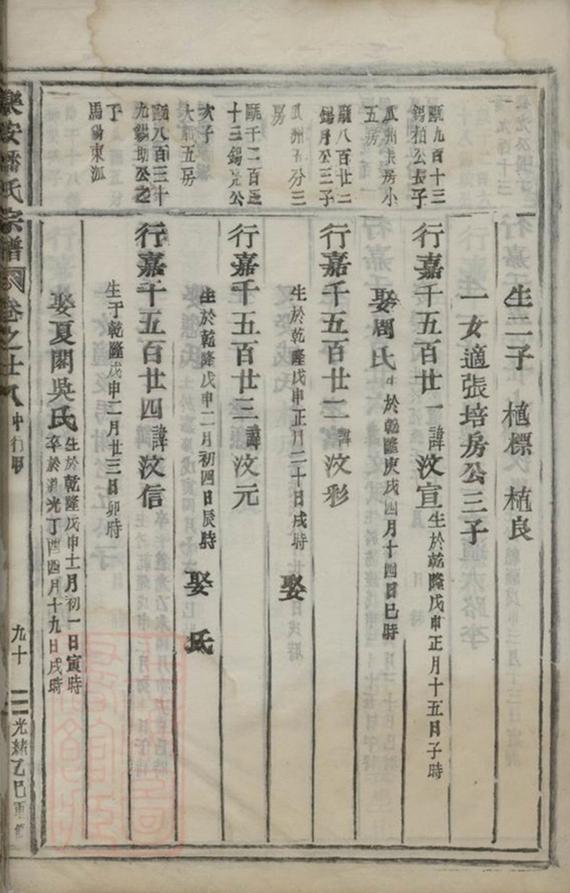 生二子 植標 植良
一女適張培房公三子
甌九百十三
錫柏公長子
瓜州長房小
五房
行嘉千五百廿一諱汶宣
生於乾隆戊申正月十五日子時
娶周氏
生於乾隆庚戌四月十四日巳時
甌八百廿二
錫月公三子
瓜州
分三
房
行嘉千五百廿二諱汶彩
生於乾隆戊申正月二十日戌時
娶
甌千二百
十三錫 公
次子
大 五房
行嘉千五百廿三諱汶元
生於乾隆戊申二月初四日辰時
娶 氏
甌八百三十
九錫助公之
子
馬錫東派
行嘉千五百廿四諱汶信
生于乾隆戊申二月廿三日卯時
娶夏閣吳氏
生於乾隆戊申十一月初一日寅時
卒於道光丁酉四月十九日戌時
樂安潘氏宗譜
卷之廿八
仲行
九十三
光緒乙巳重修